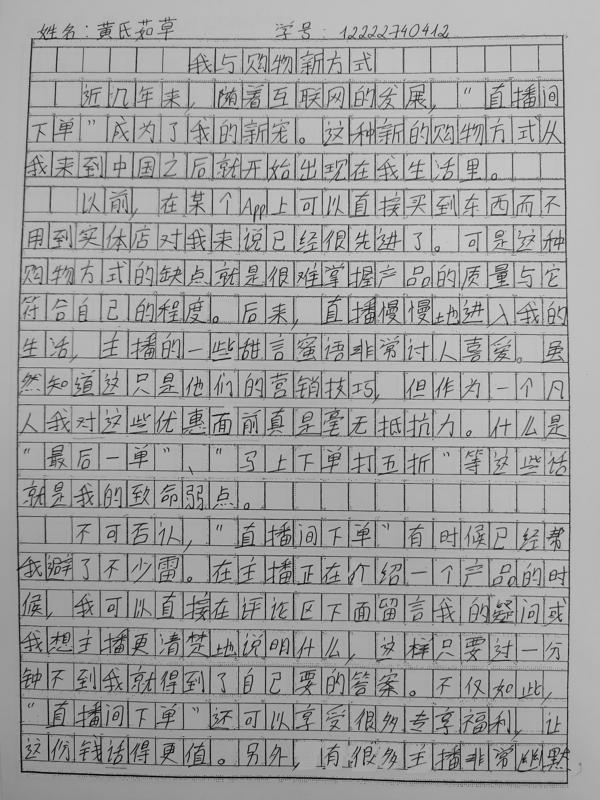 姓名：黄氏茹草 学号：12222740412
我与购物新方式
近几年来，随着互联网的发展，“直播间
下单”成为了我的新宠。这种新的购物方式从
我来到中国之后就开始出现在我生活里。
以前，在某个App上可以直接买到东西而不
用到实体店对我来说已经很先进了。可是这种
购物方式的缺点就是很难掌握产品的质量与它
符合自己的程度。后来，直播慢慢地进入我的
生活，主播的一些甜言蜜语非常讨人喜爱。虽
然知道这只是他们的营销技巧，但作为一个凡
人我对这些优惠面前真是毫无抵抗力。什么是
“最后一单”、“马上下单打五折”等这些话
就是我的致命弱点。
不可否认，“直播间下单”有时候已经帮
我避了不少雷。在主播正在介绍一个产品的时
候，我可以直接在评论区下面留言我的疑问或
我想主播更清楚地说明什么，这样只要过一分
钟不到我就得到了自己要的答案。不仅如此，
“直播间下单”还可以享受很多专享福利，让
这份钱话得更值。另外，有很多主播非常幽默，